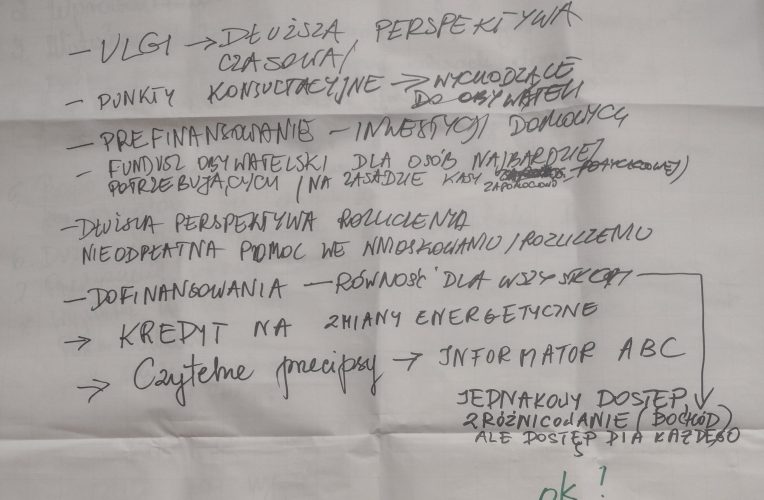 - ULGI → DŁUŻSZA PERSPEKTYWA
CZASOWA/
- PUNKTY KONSULTACYJNE → WYCHODZĄCE
DO OBYWATELI
- PREFINANSOWANIE - INWESTYCJI DOMOWYCH
- FUNDUSZ OBYWATELSKI DLA OSÓB NAJBARDZIEJ
POTRZEBUJĄCYCH /NA ZASADZIE KASY POŻYCZKOWEJ)
ZAPOMOGOWO
- DŁUŻSZA PERSPEKTYWA ROZLICZENIA
NIEODPŁATNA POMOC WE WNIOSKOWANIU/ROZLICZENIU
- DOFINANSOWANIA - RÓWNOŚĆ DLA WSZYSTKICH
→ KREDYT NA ZMIANY ENERGETYCZNE
→ Czytelne przepisy → INFORMATOR ABC
JEDNAKOWY DOSTĘP
ZRÓŻNICOWANIE (DOCHÓD)
ALE DOSTĘP DLA KAŻDEGO
ok!